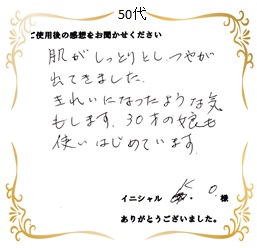 50代
ご使用後の感想をお聞かせください
肌がしっとりとし、つやが
出てきました。
きれいになったような気
もします。30才の娘も
使いはじめています。
イニシャル K.O.様
ありがとうございました。